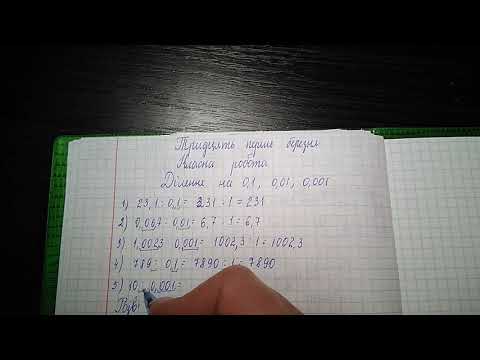 Тридцять перше березня
Класна робота
Ділення на 0,1, 0,01, 0,001
1) 23,1 : 0,1 = 231 : 1 = 231
2) 0,067 : 0,01 = 6,7 : 1 = 6,7
3) 1,0023 : 0,001 = 1002,3 : 1 = 1002,3
4) 789 : 0,1 = 7890 : 1 = 7890
5) 10 : 0,001 =